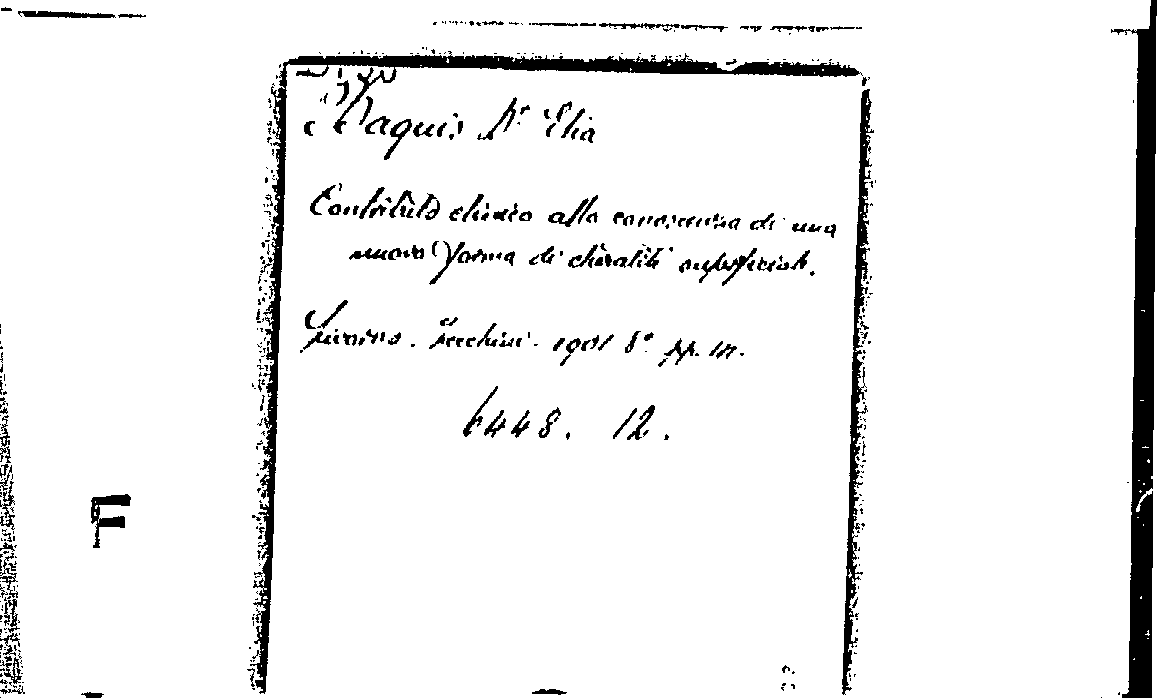 Baquis Dr Elia
Contributo clinico alla conoscenza di una
nuova forma di cheratite superficiale.
1901 8° pp. 
6448. 12.
F